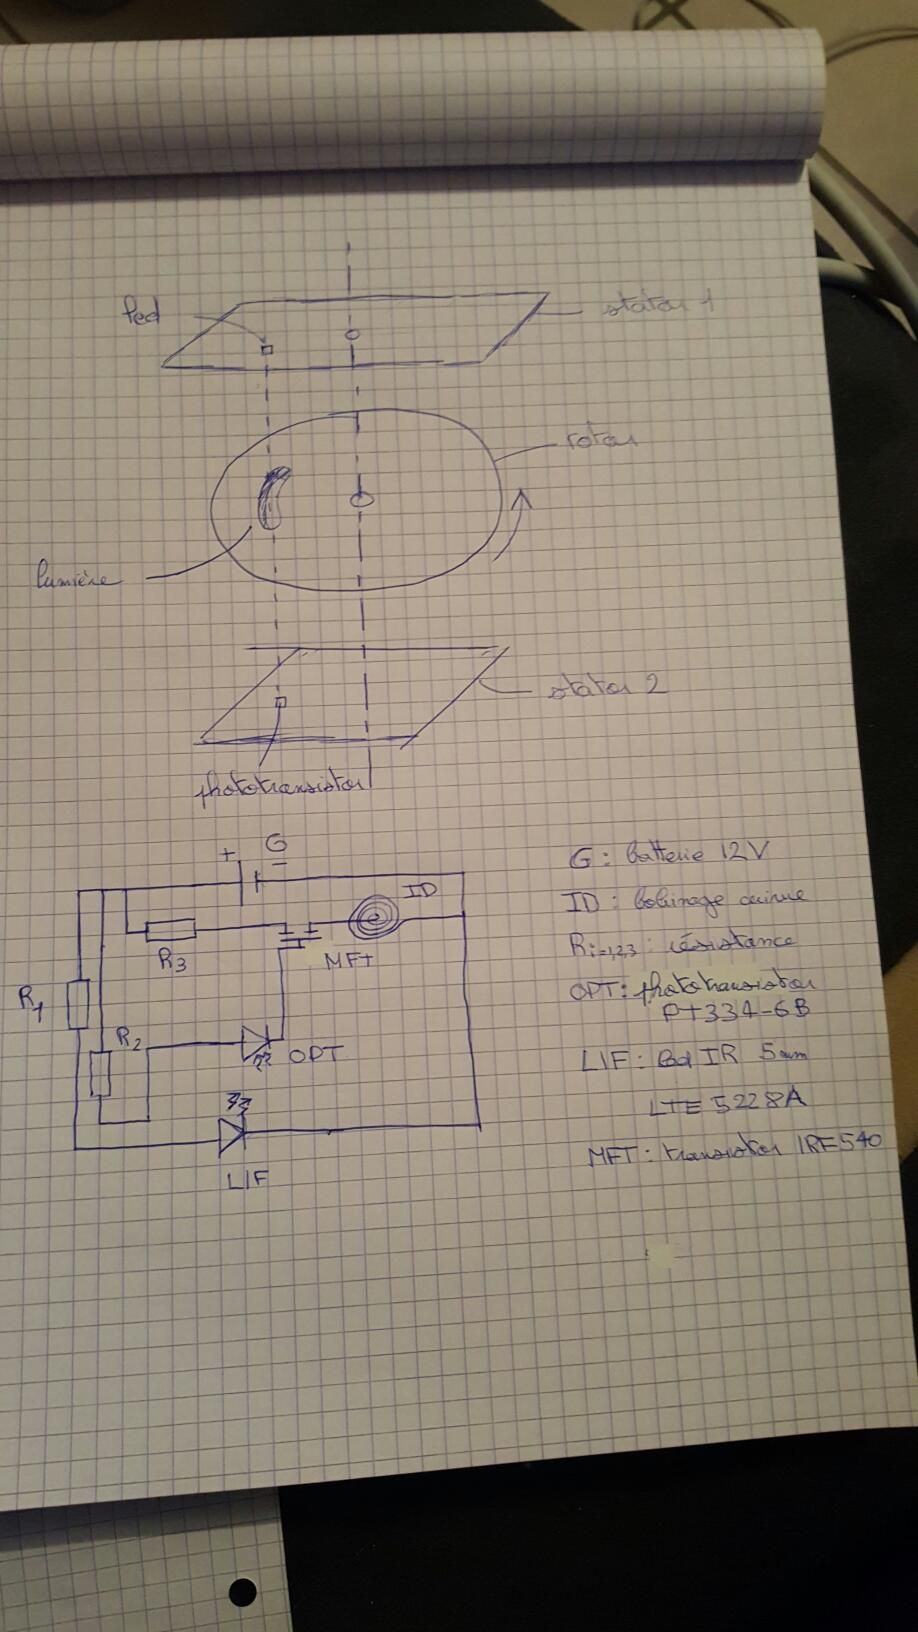 led
stator 1
rotor
lumière
stator 2
phototransistor
+ G -
ID
R3
MFT
R1
R2
OPT
LIF
G : batterie 12V
ID : bobinage cuivre
Ri=1,2,3 : résistance
OPT : phototransistor
PT334-6B
LIF : Led IR 5mm
LTE 5228A
MFT : transistor IRF540